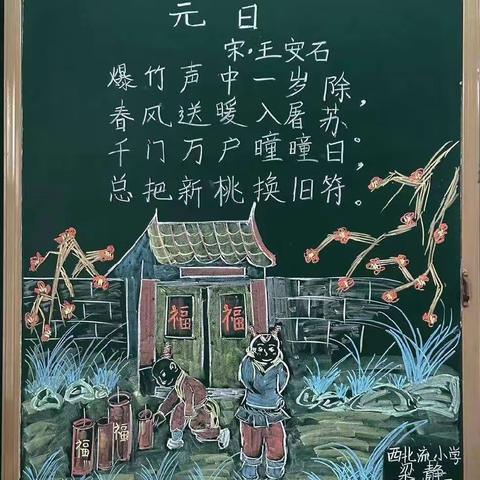 元日
宋·王安石
爆竹声中一岁除，
春风送暖入屠苏。
千门万户曈曈日，
总把新桃换旧符。
福
福
福
福
西北流小学
梁静